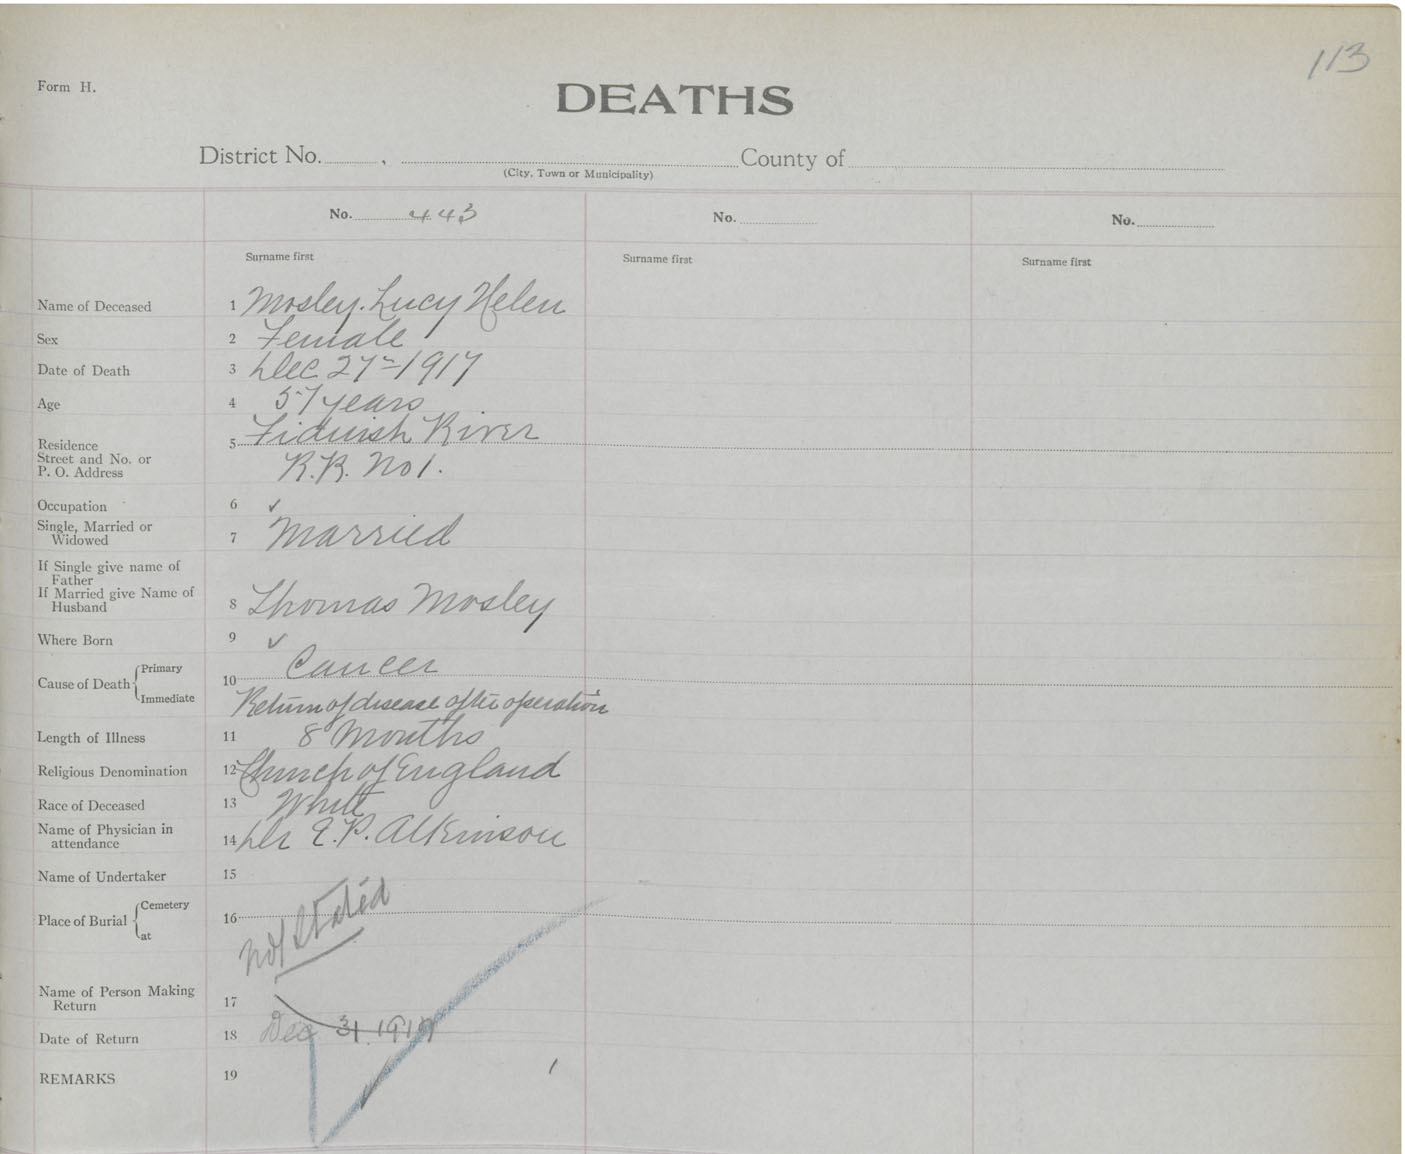 113
Form H.
DEATHS
District No. , County of
(City, Town or Municipality)
No. 443 No. No.
Surname first Surname first Surname first
Name of Deceased 1 Mosley. Lucy Helen
Sex 2 Female
Date of Death 3 Dec 27th 1917
Age 4 57 years
Residence 5 Tidnish River
Street and No. or
P. O. Address R.R. No 1.
Occupation 6 ✓
Single, Married or
Widowed 7 Married
If Single give name of
Father
If Married give Name of
Husband 8 Thomas Mosley
Where Born 9 ✓
Cause of Death Primary 10 Cancer
Immediate Return of disease after operation
Length of Illness 11 8 Months
Religious Denomination 12 Church of England
Race of Deceased 13 White
Name of Physician in
attendance 14 Dr E. P. Atkinson
Name of Undertaker 15
Place of Burial Cemetery 16 not Stated
at
Name of Person Making
Return 17
Date of Return 18 Dec 31. 1917
REMARKS 19